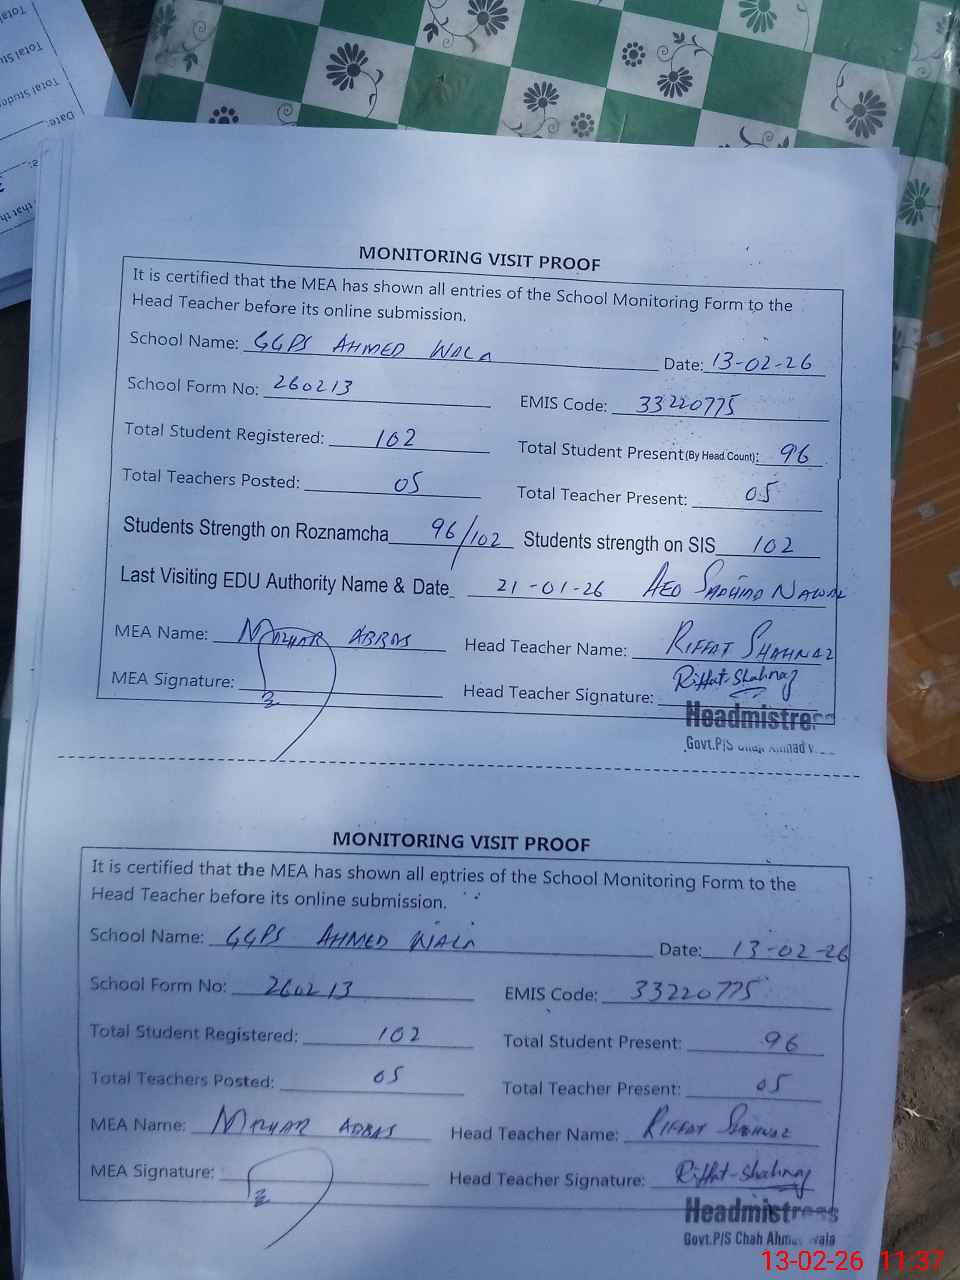 MONITORING VISIT PROOF
It is certified that the MEA has shown all entries of the School Monitoring Form to the
Head Teacher before its online submission.
School Name: GGPS AHMED WALA Date: 13-02-26
School Form No: 260213 EMIS Code: 33220775
Total Student Registered: 102 Total Student Present(By Head Count): 96
Total Teachers Posted: 05 Total Teacher Present: 05
Students Strength on Roznamcha 96/102 Students strength on SIS 102
Last Visiting EDU Authority Name & Date 21-01-26 AEO
MEA Name: MAZHAR ABBAS Head Teacher Name: RIFFAT SHAHNAZ
MEA Signature: Head Teacher Signature: Riffat-Shahnaz
Headmistress
Govt.P/S Chah Ahmad
MONITORING VISIT PROOF
It is certified that the MEA has shown all entries of the School Monitoring Form to the
Head Teacher before its online submission.
School Name: GGPS AHMED WALA Date: 13-02-26
School Form No: 260213 EMIS Code: 33220775
Total Student Registered: 102 Total Student Present: 96
Total Teachers Posted: 05 Total Teacher Present: 05
MEA Name: MAZHAR ABBAS Head Teacher Name: RIFFAT SHAHNAZ
MEA Signature: Head Teacher Signature: Riffat-Shahnaz
Headmistress
Govt.P/S Chah Ahmad Wala
13-02-26 11:37